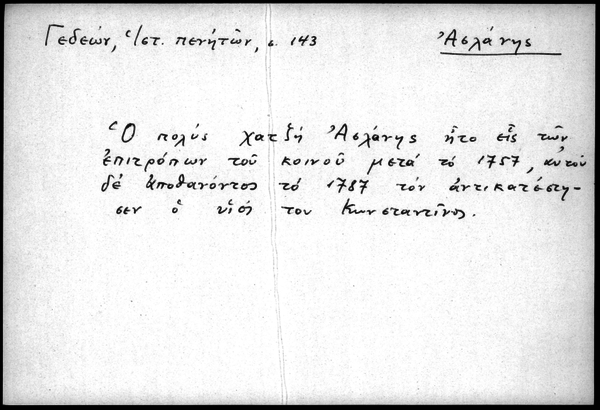 Γεδεών, Ἱστ. πενήτων, σ. 143
Ἀσλάνης
Ὁ πολύς χατζῆ Ἀσλάνης ἦτο εἷς τῶν
ἐπιτρόπων τοῦ κοινοῦ μετά τό 1757, αὐτοῦ
δέ ἀποθανόντος τό 1787 τόν ἀντικατέστη-
σεν ὁ υἱός του Κωνσταντῖνος.